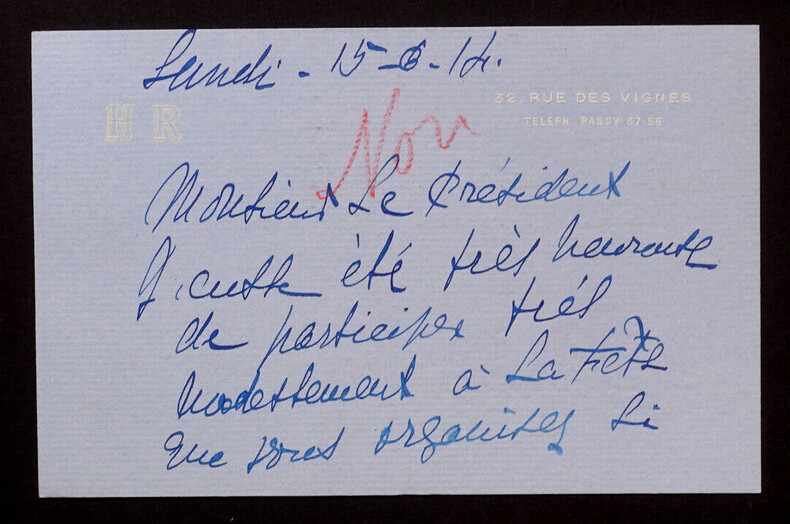 Lundi - 15-6-14.
H R
32, RUE DES VIGNES
TÉLÉPH. PASSY 67-56
Non
Monsieur Le Président
J'eusse été très heureuse
de participer très
modestement à La Fête
que vous organisez si